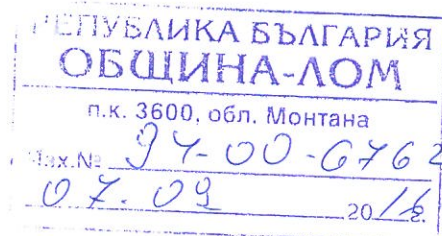 РЕПУБЛИКА БЪЛГАРИЯ
ОБЩИНА-ЛОМ
п.к. 3600, обл. Монтана
Изх.№ 94-00-6762
07.09 2016 г.